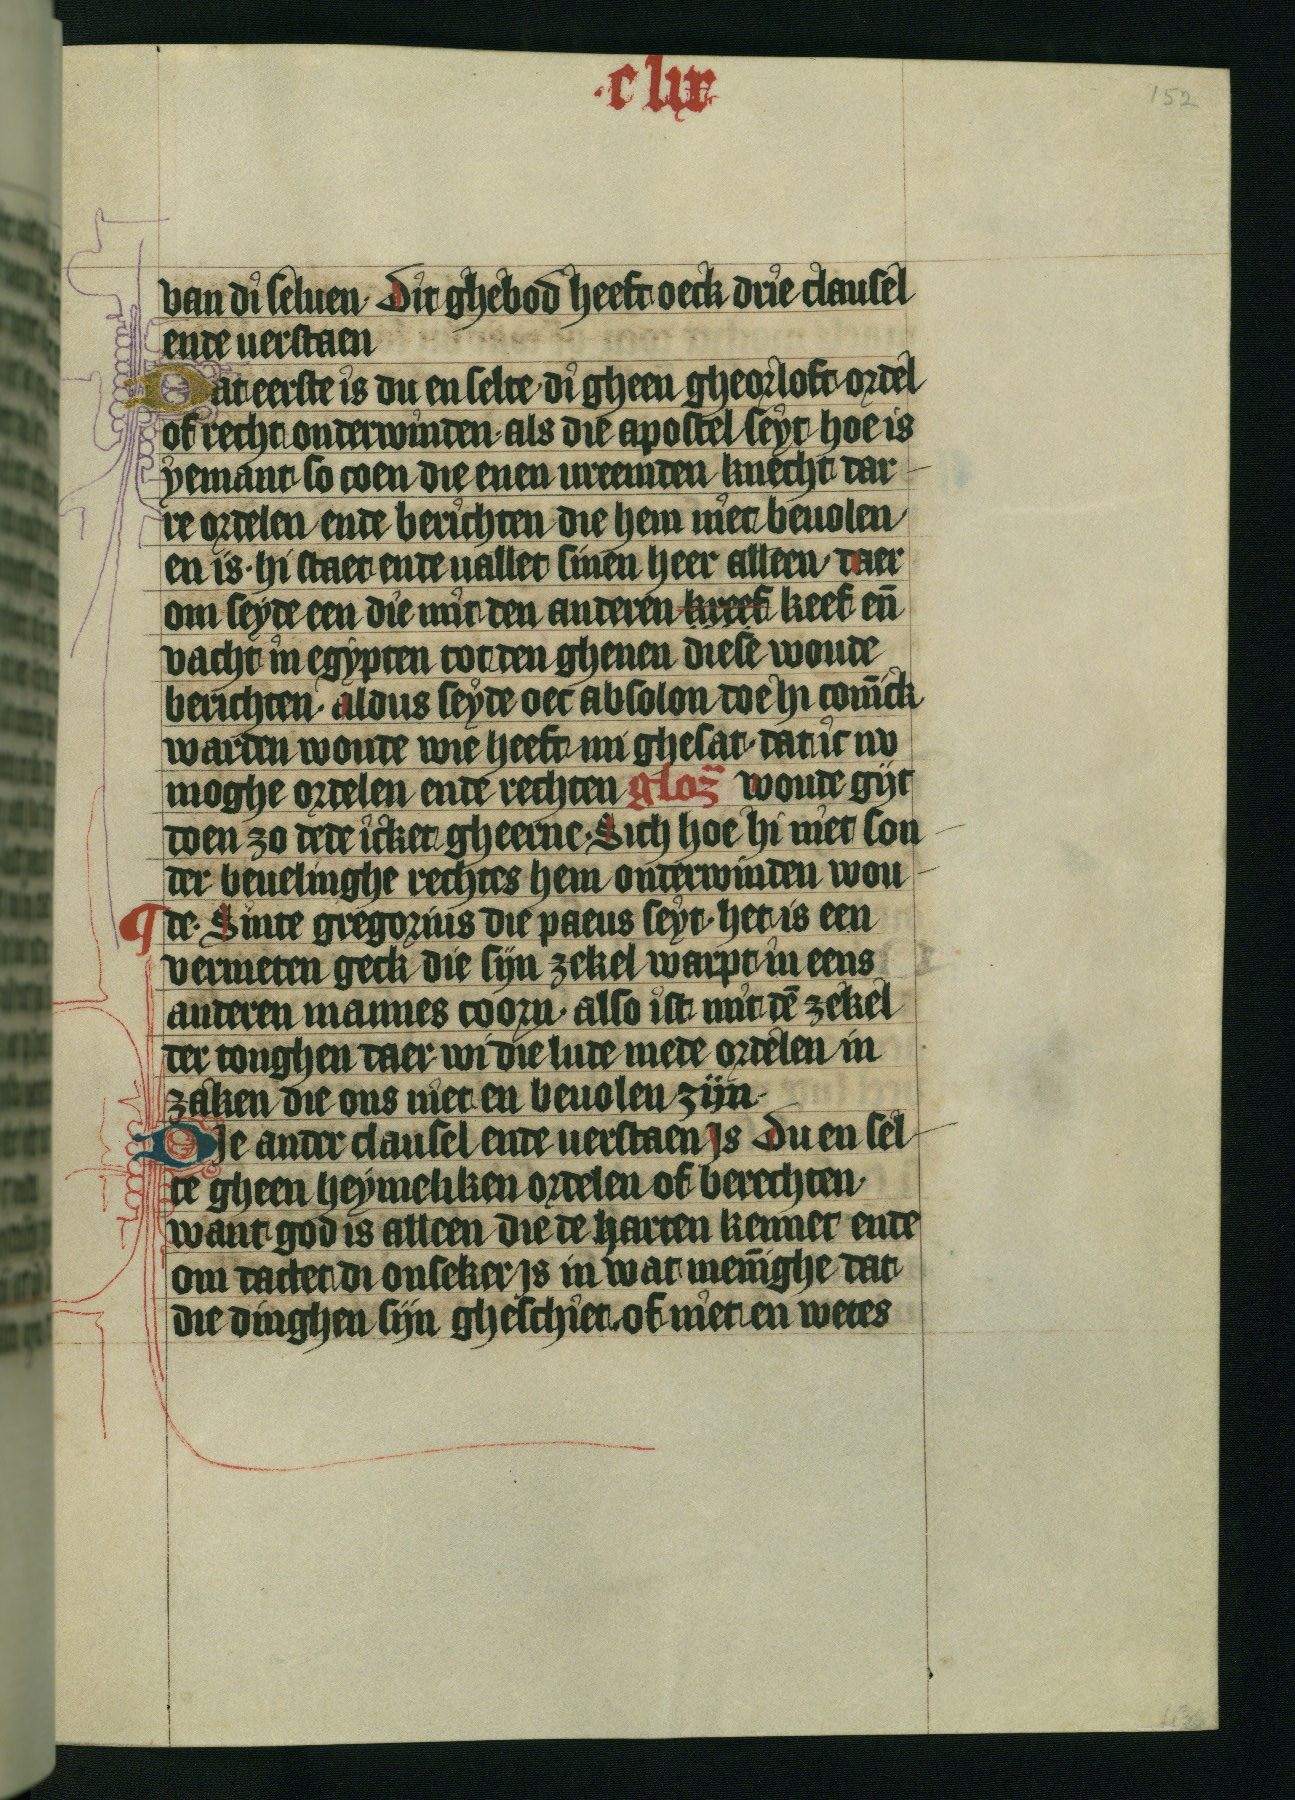 ·clix
152
van di seluen· Dit ghebod heeft oeck drie clausel
ende uerstaen
Dat eerste is du en selte di gheen gheorloft ordel
of recht onderwinden· als die apostel seyt hoe is
yemant so coen die enen ureemden knecht dar
re ordelen ende berichten die hem niet beuolen
en is· hi staet ende uallet sinen heer alleen· daer
om seyde een die mit den anderen kreef keef en̄
vacht in egypten tot den ghenen diese woude
berichten· aldus seyde oec absolon doe hi conīck
warden woude wie heeft mi ghesat· dat ic nv
moghe ordelen ende rechten gloz̄ woude gijt
doen zo dede icket gheerne· Sich hoe hi niet son
der beuelinghe rechtes hem onderwinden wou
¶ de· Sinte gregorius die paeus seyt· het is een
vermeten geck die sijn zekel warpt in eens
anderen mannes coorn· also ist mit dē zekel
der tonghen daer wi die lude mede ordelen in
zaken die ons niet en beuolen zijn·
Die ander clausel ende uerstaen js Du en sel
te gheen heymeliken ordelen of berechten·
want god is alleen die de harten kennet ende
om dattet di onseker js in wat men̄ighe dat
die dinghen sijn gheschiet· of niet en wetes